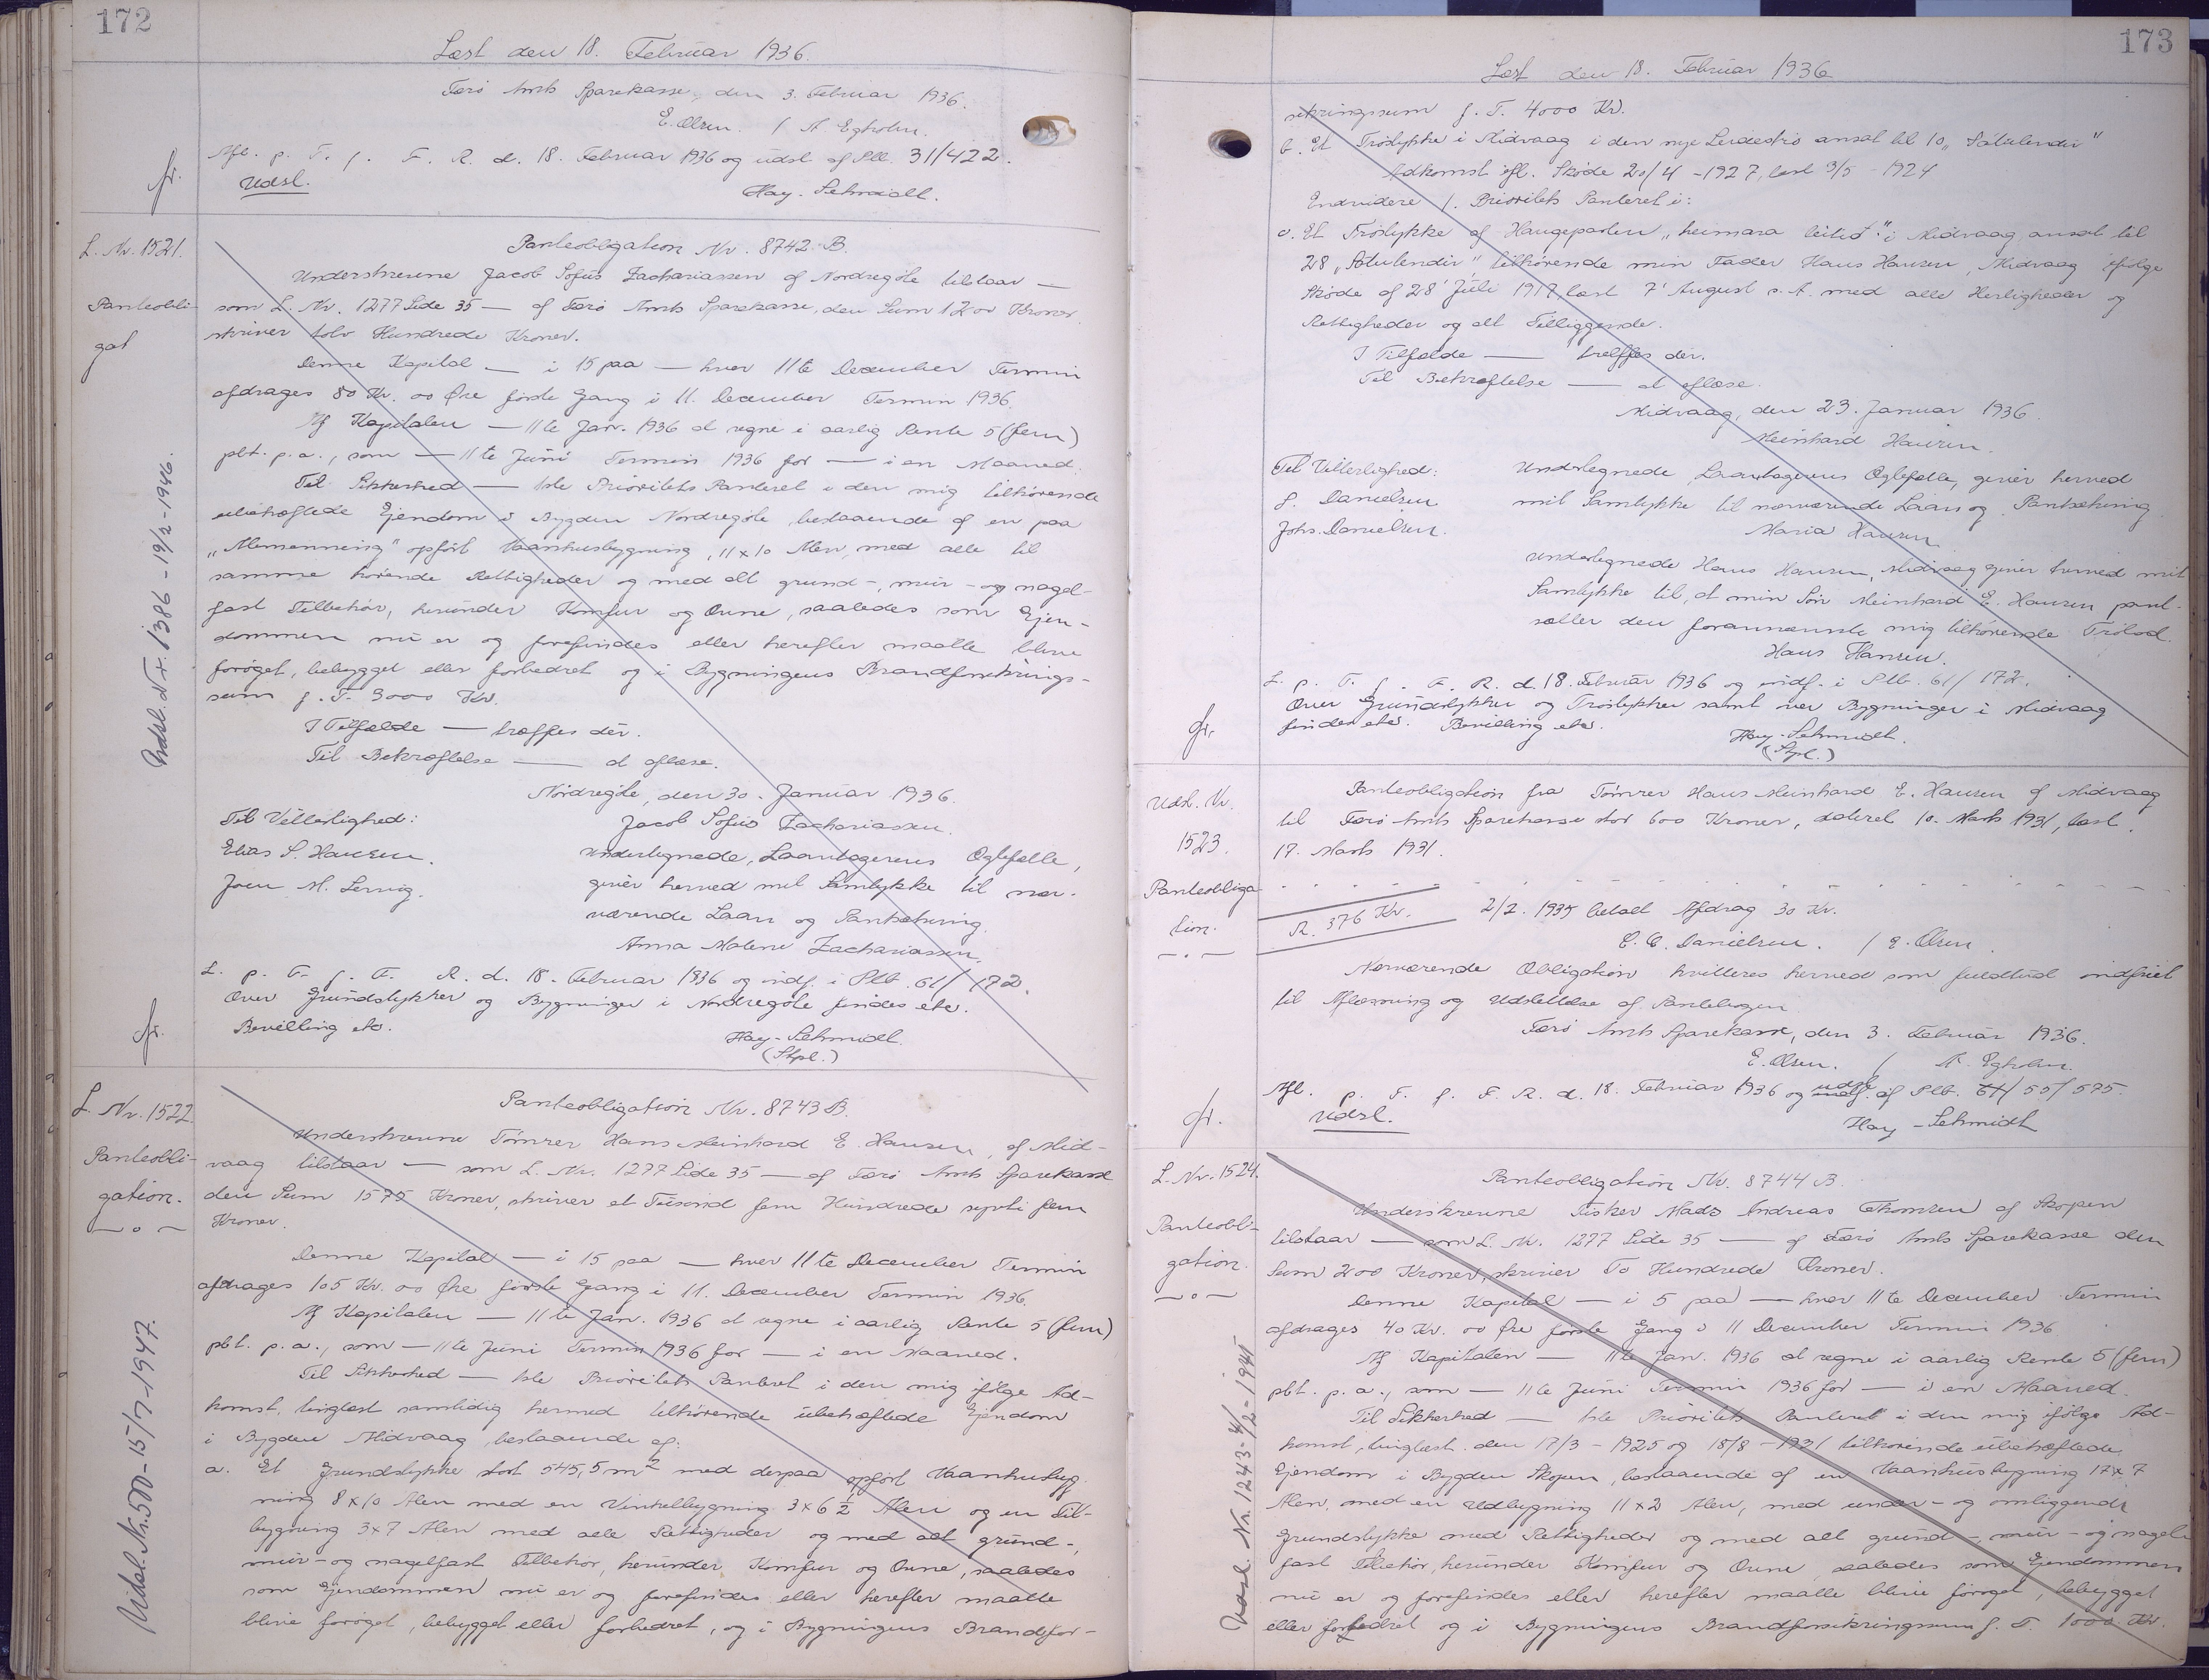 172
Læst den 18. Februar 1936.
Færø Amts Sparekasse, den 3. Februar 1936.
E. Olsen. / A. Egholm.
Afl. p. F. f. F. R. d. 18. Februar 1936 og udsl. af Plb. 31/422.
fr.
Udsl.
Hay-Schmidt.
L. Nr. 1521.
Panteobli-
gat
Udsl. Nr. 1386 - 19/2 - 1946.
Panteobligation Nr. 8742 B.
Underskrevne Jacob Sofus Zachariassen af Nordregöte tilstaar —
som L. Nr. 1277 Side 35 — af Færø Amts Sparekasse, den Sum 1200 Kroner
skriver tolv Hundrede Kroner.
Denne Kapital — i 15 paa — hver 11te December Termin
afdrages 80 Kr. 00 Øre første Gang i 11. December Termin 1936.
Af Kapitalen — 11te Jan. 1936 at regne i aarlig Rente 5 (fem)
pCt. p.a., som — 11te Juni Termin 1936 for — i en Maaned.
Til Sikkerhed — 1ste Prioritets Panteret i den mig tilhørende
ubehæftede Ejendom i Bygden Nordregöte, bestaaende af en paa
"Almenning" opført Vaanhusbygning, 11 x 10 Alen, med alle til
samme hørende Rettigheder og med alt grund-, mur- og nagel-
fast Tilbehør, herunder Komfur og Ovne, saaledes som Ejen-
dommen nu er og forefindes eller herefter maatte blive
forøget, bebygget eller forbedret og i Bygningens Brandforsikrings-
sum f. T. 3000 Kr.
I Tilfælde — træffes dér.
Til Bekræftelse — at aflæse.
Nordregöte, den 30. Januar 1936.
Til Vitterlighed:
Jacob Sofus Zachariassen.
Elias S. Hansen.
Undertegnede, Laantagerens Ægtefælle,
Joen M. Lervig.
giver herved mit Samtykke til nær-
værende Laan og Pantsætning.
Anna Malene Zachariassen.
L. p. F. f. F. R. d. 18. Februar 1936 og indf. i Plb. 61/172.
Over Grundstykker og Bygninger i Nordregöte findes etc.
fr.
Bevilling etc.
Hay-Schmidt.
(Stpl.)
L. Nr. 1522
Panteobli-
gation.
Udsl. Nr. 500 - 15/7 - 1947.
Panteobligation Nr. 8743 B.
Underskrevne Tømrer Hans Meinhard E. Hansen, af Mid-
vaag tilstaar — som L. Nr. 1277 Side 35 — af Færø Amts Sparekasse
den Sum 1575 Kroner, skriver et Tusind fem Hundrede syvti fem
Kroner.
Denne Kapital — i 15 paa — hver 11te December Termin
afdrages 105 Kr. 00 Øre første Gang i 11. December Termin 1936.
Af Kapitalen — 11te Jan. 1936 at regne i aarlig Rente 5 (fem)
pCt. p.a., som — 11te Juni Termin 1936 for — i en Maaned.
Til Sikkerhed — 1ste Prioritets Panteret i den mig ifølge Ad-
komst, tinglæst samtidig hermed tilhørende ubehæftede Ejendom
i Bygden Midvaag, bestaaende af:
a. Et Grundstykke stort 545,5 m2 med derpaa opført Vaanhusbyg-
ning 8 x 10 Alen med en Vinkelbygning 3 x 6 1/2 Alen og en Til-
bygning 3 x 7 Alen med alle Rettigheder og med alt grund-,
mur- og nagelfast Tilbehør, herunder Komfur og Ovne, saaledes
som Ejendommen nu er og forefindes eller herefter maatte
blive forøget, bebygget eller forbedret, og i Bygningens Brandfor-
173
Læst den 18. Februar 1936
sikringssum f. T. 4000 Kr.
b. Et Trøstykke i Midvaag i den nye Leideströ ansat til 10 "Sátulendir"
Adkomst ifl. Skøde 20/4 - 1927, læst 3/5 - 1924
Endvidere 1. Prioritets Panteret i:
c. Et Trøstykke af Haugeparten "heimara leitið" i Midvaag ansat til
28 "Sátulendir" tilhørende min Fader Hans Hansen, Midvaag ifølge
Skøde af 28' Juli 1917, læst 7' August s. A. med alle Herligheder og
Rettigheder og alt Tilliggende.
I Tilfælde — træffes dér.
Til Bekræftelse — at aflæse.
Midvaag, den 23. Januar 1936.
Meinhard Hansen.
Til Vitterlighed:
Undertegnede, Laantagerens Ægtefælle, giver herved
J. Danielsen
mit Samtykke til nærværende Laan og Pantsætning.
Johs. Danielsen.
Maria Hansen.
Undertegnede Hans Hansen, Midvaag giver herved mit
Samtykke til, at min Søn Meinhard E. Hansen pant-
sætter den forannævnte mig tilhørende Trölod.
Hans Hansen.
L. p. F. f. F. R. d. 18. Februar 1936 og indf. i Plb. 61/172.
Over Grundstykker og Trøstykker samt over Bygninger i Midvaag
fr.
findes etc. Bevilling etc.
Hay-Schmidt.
(Stpl.)
Udsl. Nr.
1523.
Panteobliga-
tion.
Panteobligation fra Tømrer Hans Meinhard E. Hansen af Midvaag
til Færø Amts Sparekasse stor 600 Kroner, dateret 10. Marts 1931, læst
17. Marts 1931.
R. 376 Kr.
2/2. 1935 betalt Afdrag 30 Kr.
C. C. Danielsen. / E. Olsen.
Nærværende Obligation kvitteres herved som fuldtud indfriet
til Aflæsning og Udslettelse af Pantebogen.
Færø Amts Sparekasse, den 3. Februar 1936.
E. Olsen. / A. Egholm.
Afl. p. F. f. F. R. d. 18. Februar 1936 og udsl. af Plb. 55/575.
fr.
Udsl.
Hay-Schmidt
L. Nr. 1524.
Panteobli-
gation.
Udsl. Nr. 1243 - 4/2 - 1941
Panteobligation Nr. 8744 B.
Underskrevne Fisker Mads Andreas Thomsen af Skopen
tilstaar — som L. Nr. 1277 Side 35 — af Færø Amts Sparekasse den
Sum 200 Kroner, skriver To Hundrede Kroner.
Denne Kapital — i 5 paa — hver 11te December Termin
afdrages 40 Kr. 00 Øre første Gang i 11 December Termin 1936
Af Kapitalen — 11te Jan. 1936 at regne i aarlig Rente 5 (fem)
pCt. p.a., som — 11te Juni Termin 1936 for — i en Maaned.
Til Sikkerhed — 1ste Prioritets Panteret i den mig ifølge Ad-
komst, tinglæst den 17/3 - 1925 og 18/8 - 1931 tilhørende ubehæftede
Ejendom i Bygden Skopen, bestaaende af en Vaanhusbygning 17 x 7
Alen, med en Udbygning 11 x 2 Alen, med under- og omliggende
Grundstykke med Rettigheder og med alt grund-, mur- og nagel-
fast Tilbehør, herunder Komfur og Ovne, saaledes som Ejendommen
nu er og forefindes eller herefter maatte blive forøget, bebygget
eller forbedret og i Bygningens Brandforsikringssum f. T. 1000 Kr.